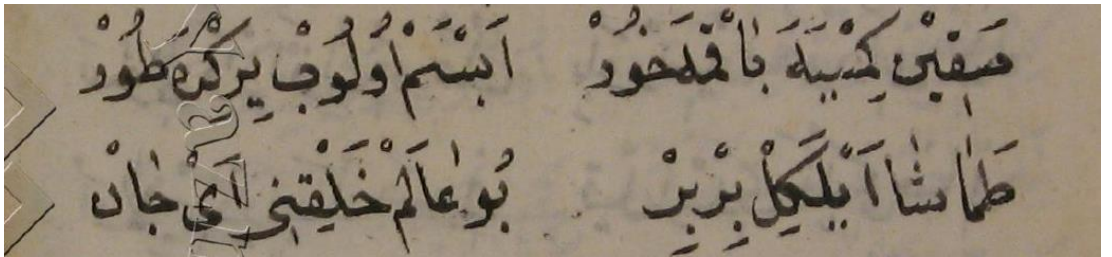 صَقِينْ كِمْسَيَه بَاقْمَه خُورْ اَبْسَمْ اُولُوبْ يِرِكْدَه طُورْ
طَمَاشَا اَيْلَكِلْ بِرْبِرْ بُو عَالَمْ خَلْقِنِى اَىْ جَانْ